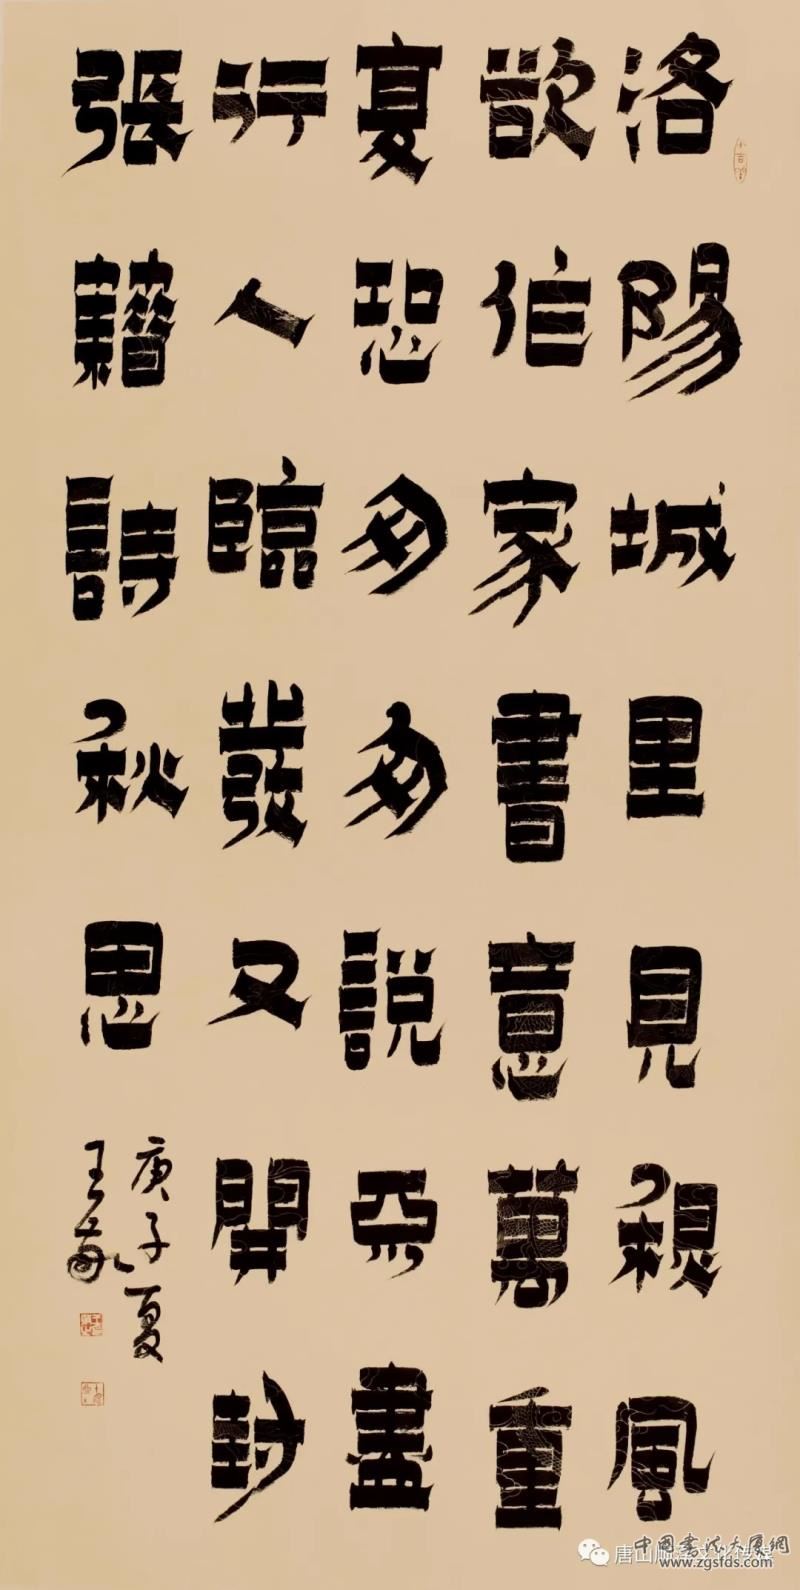 洛陽城里見秋風
欲作家書意萬重
复恐匆匆說不盡
行人臨發又開封
張籍詩秋思
庚子夏
王
唐山文化传媒
中國書法大廈網
www.zgsfds.com